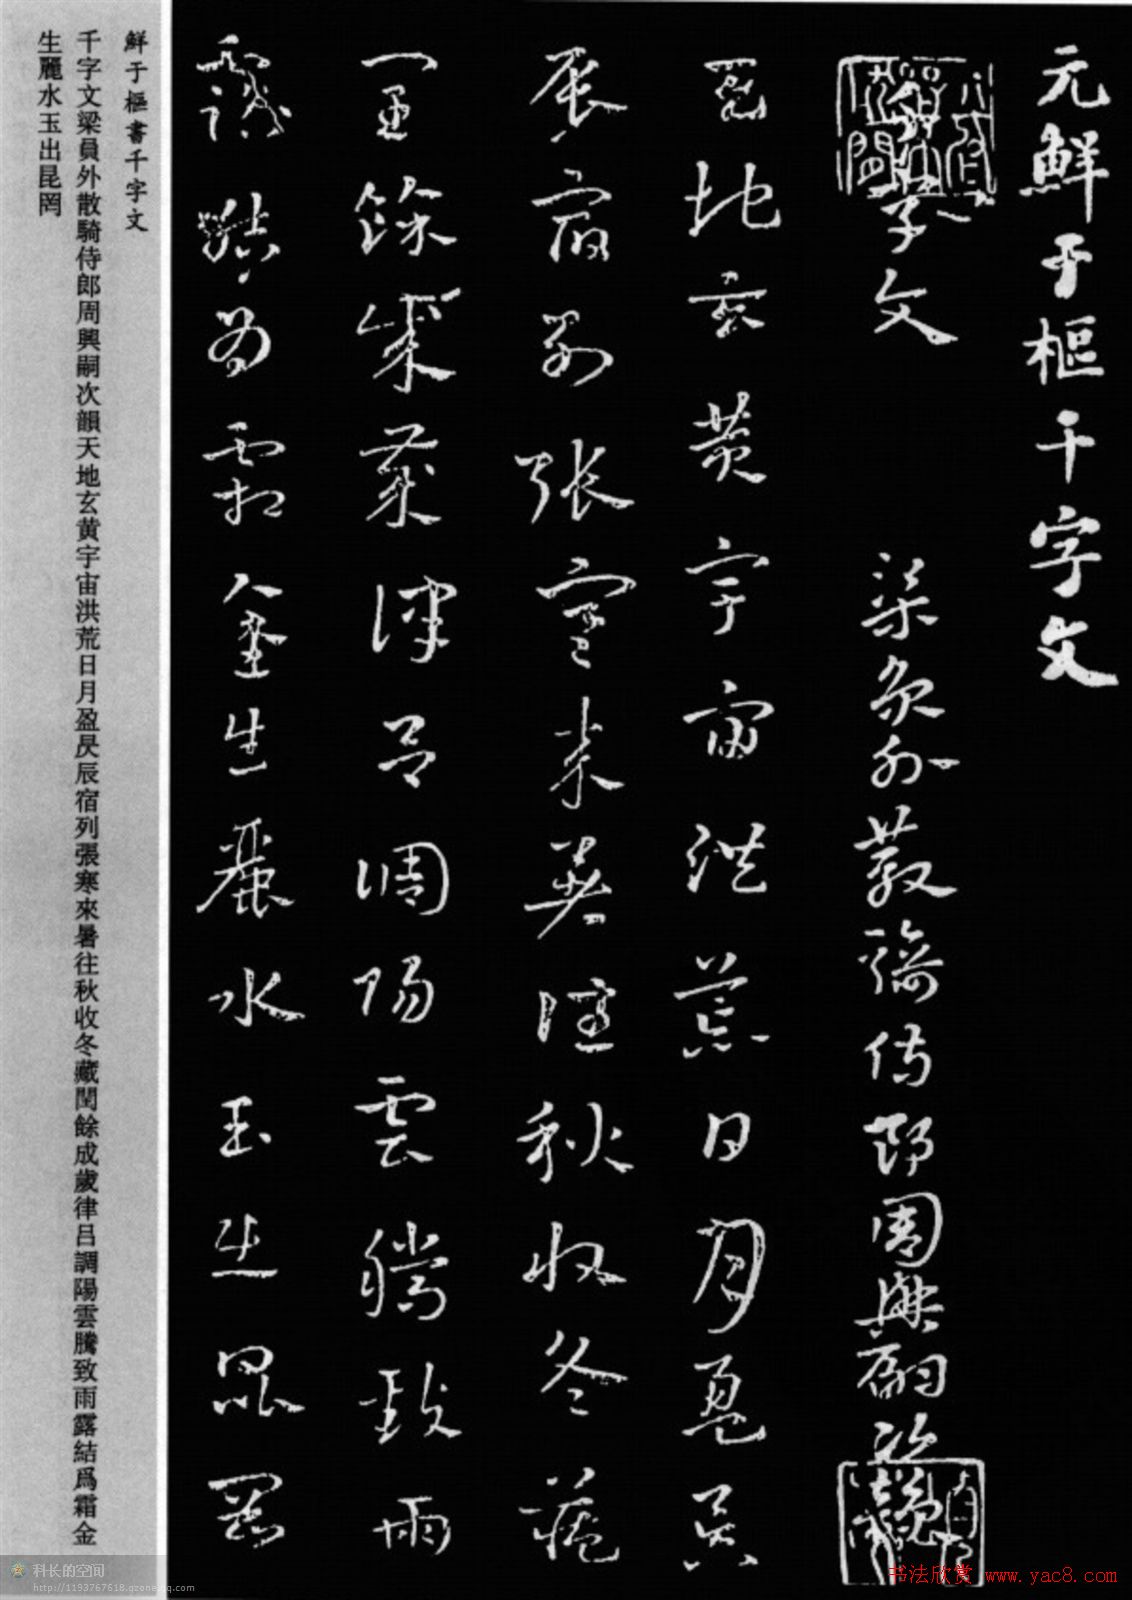 元鮮于樞千字文
千字文
梁員外散騎侍郎周興嗣次韻
天地玄黃宇宙洪荒日月盈昃
辰宿列張寒來暑往秋收冬藏
閏餘成歲律呂調陽雲騰致雨
露結爲霜金生麗水玉出崑岡
鮮于樞書千字文
千字文梁員外散騎侍郎周興嗣次韻天地玄黄宇宙洪荒日月盈昃辰宿列張寒來暑往秋收冬藏閏餘成歲律呂調陽雲騰致雨露結爲霜金
生麗水玉出昆罔
科长的空间
http://1193767618.qzone.qq.com
书法欣赏 www.yac8.com